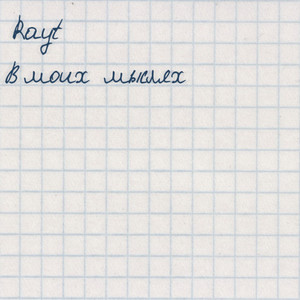 Rayt
В моих мыслях